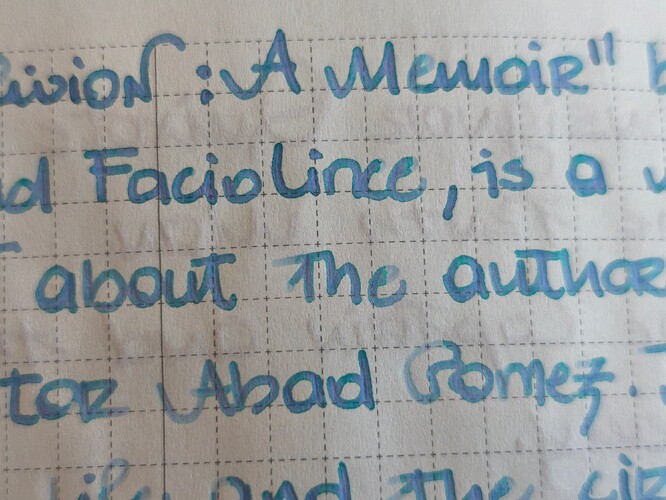 livion: A Memoir" b
d Faciolince, is a
about the author
tor Abad Gomez.
and the cir